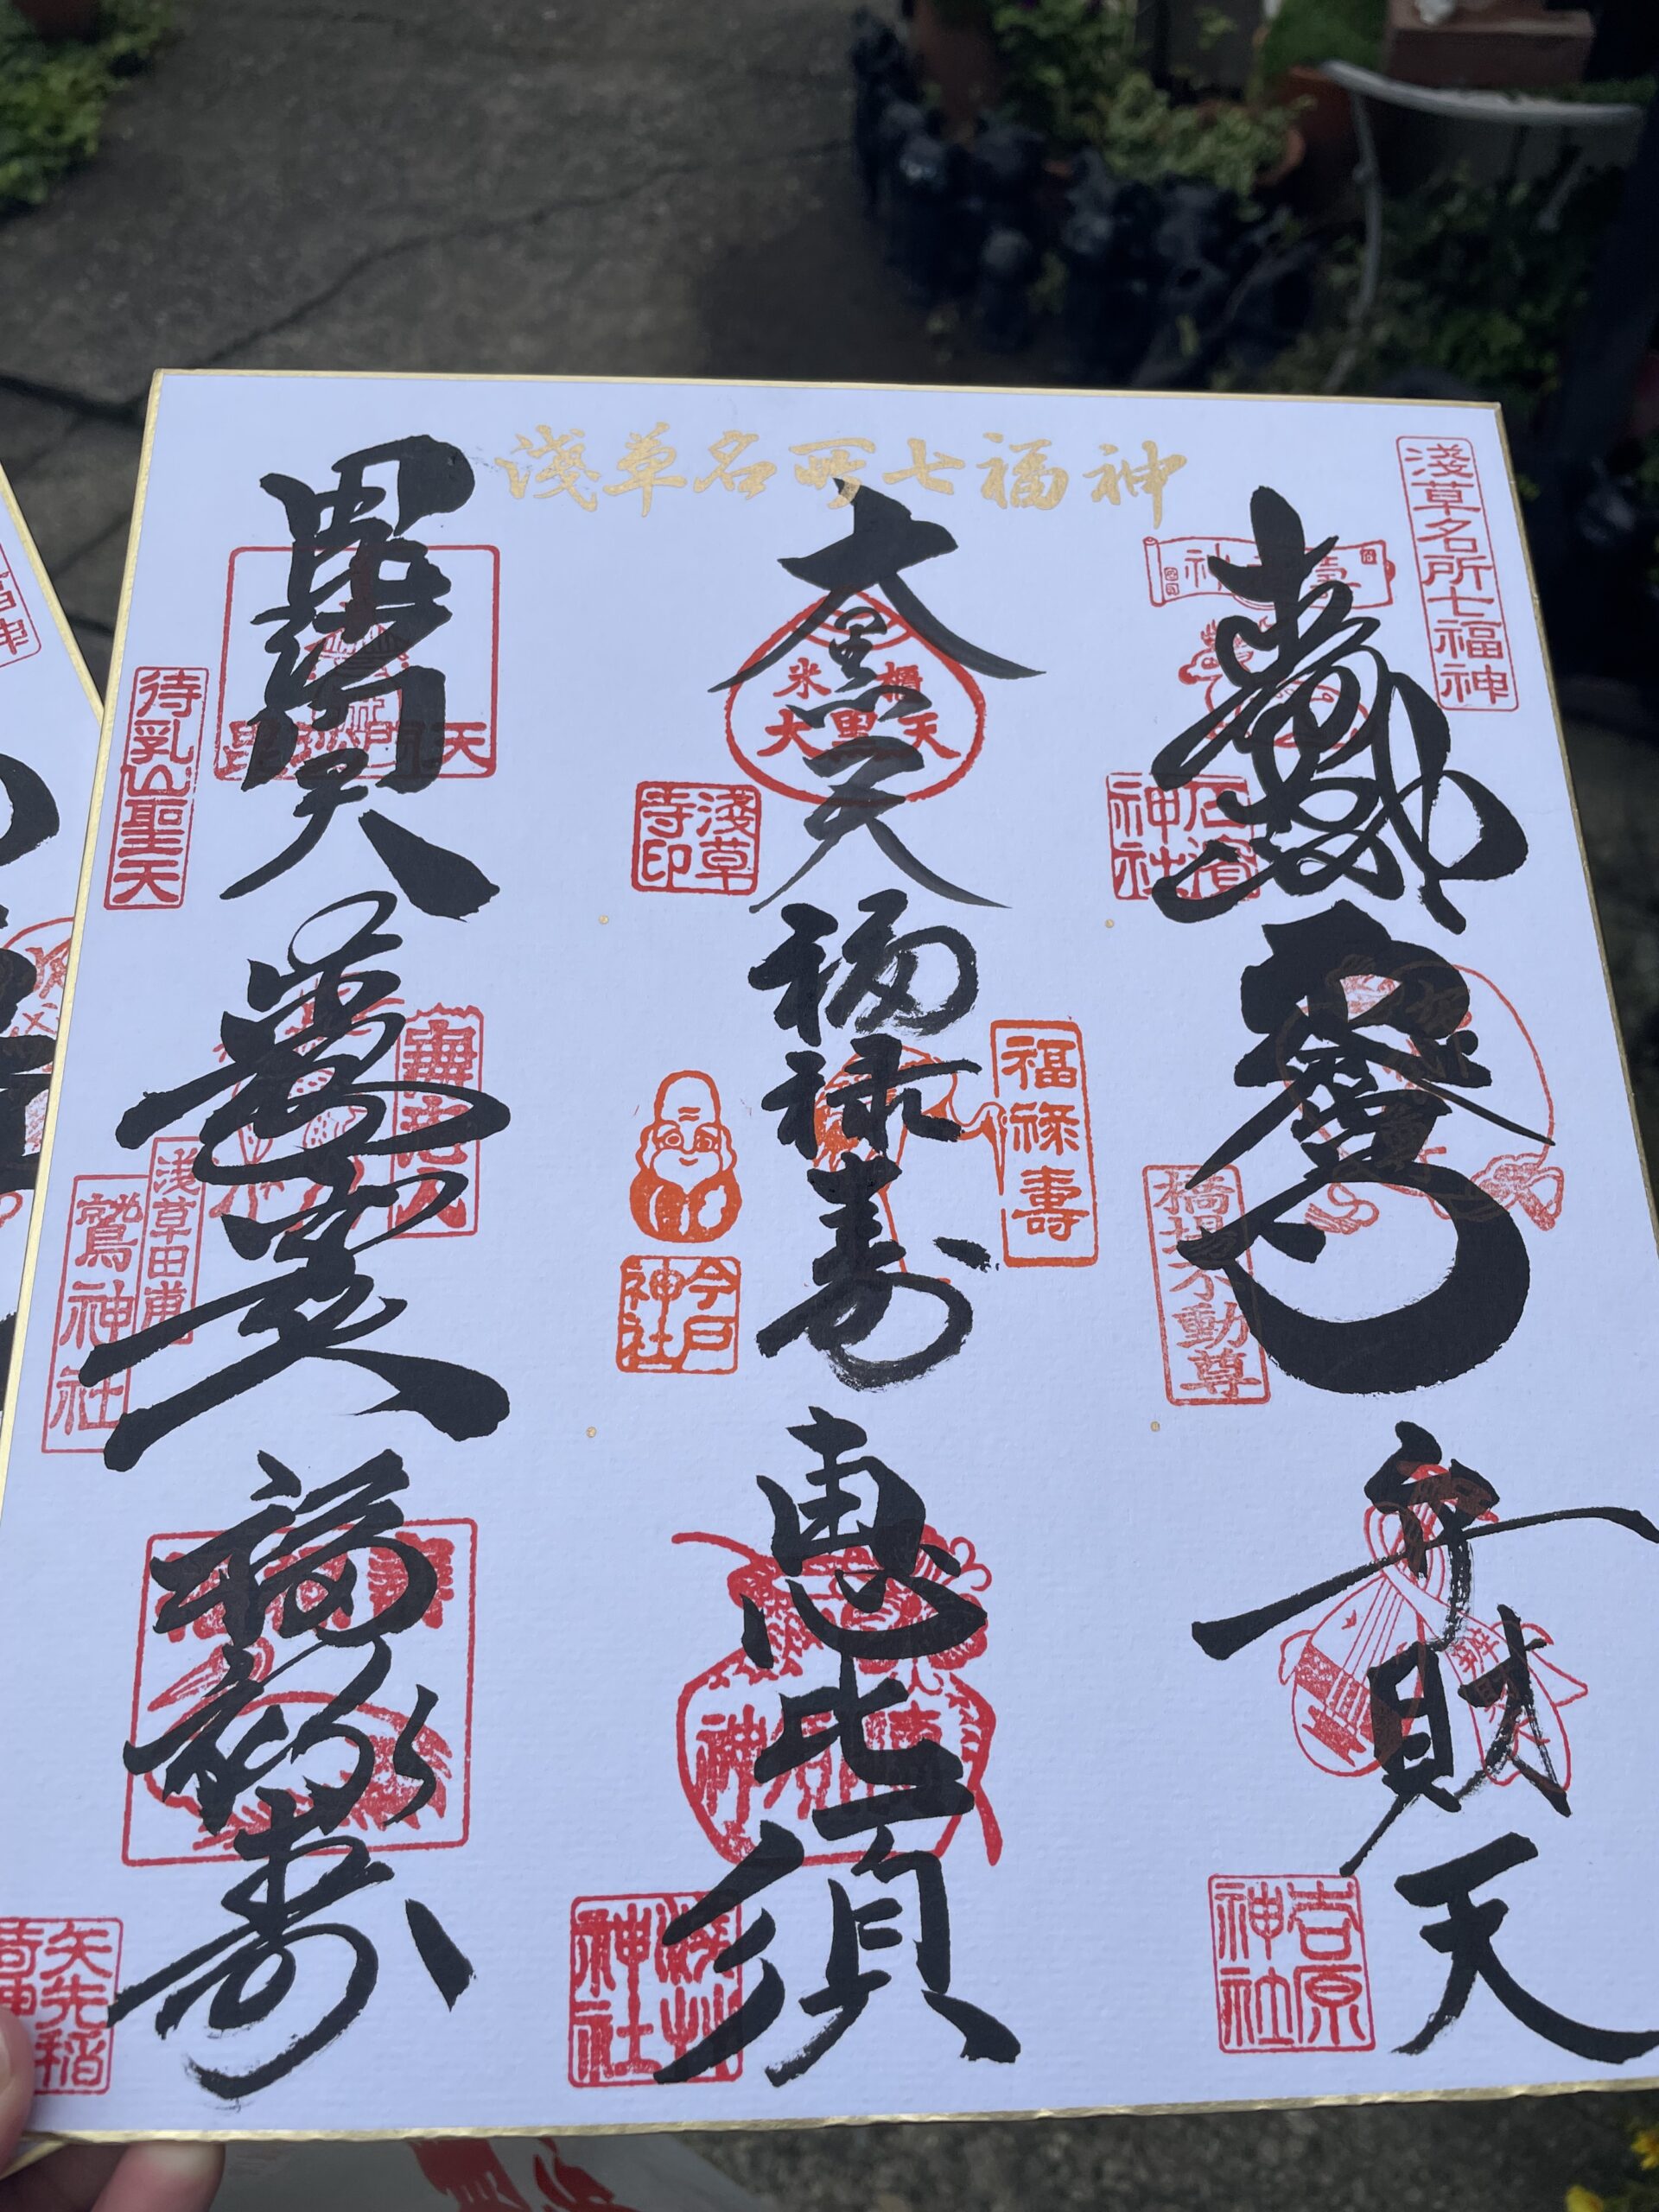 淺草名所七福神
淺草名所七福神
壽老神
石濱神社
布袋尊
橋場不動尊
弁財天
吉原神社
大黒天
米櫃
大黒天
淺草寺印
福禄寿
福禄壽
今戸神社
恵比須
浅草神社
毘沙門天
毘沙門天
待乳山聖天
寿老人
壽老人
浅草田甫
鷲神社
福禄寿
矢先稲